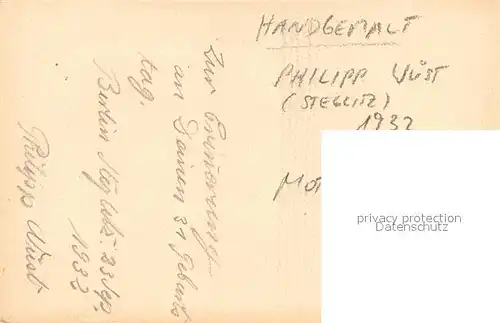 HANDGEMALT
PHILIPP WÜST
(STEGLITZ)
1932
Zur Erinnerung
an Deinen 31 Geburts
tag.
Berlin Steglitz. 23 Sep.
1932
Philipp Wüst
privacy protection
watermark